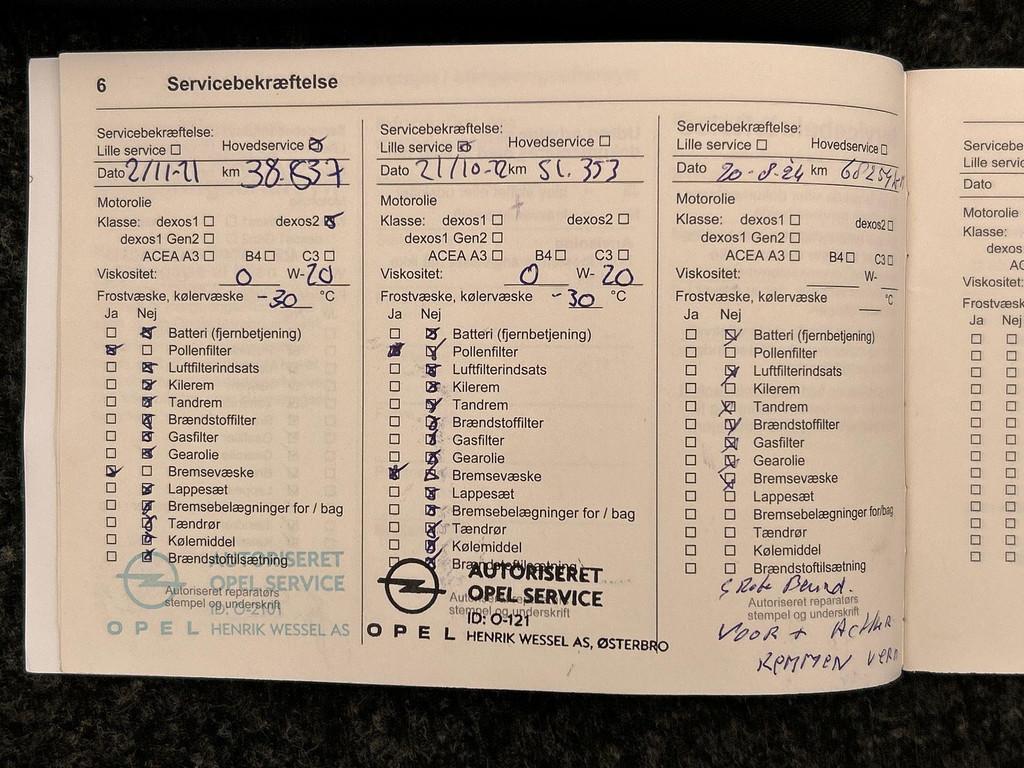 6 Servicebekræftelse
Servicebekræftelse:
Lille service Hovedservice
Dato 2/11-21 km 38.837
Motorolie
Klasse: dexos1 dexos2
dexos1 Gen2
ACEA A3 B4 C3
Viskositet: 0 W-20
Frostvæske, kølervæske -30 °C
Ja Nej
Batteri (fjernbetjening)
Pollenfilter
Luftfilterindsats
Kilerem
Tandrem
Brændstoffilter
Gasfilter
Gearolie
Bremsevæske
Lappesæt
Bremsebelægninger for / bag
Tændrør
Kølemiddel
Brændstoftilsætning
AUTORISERET
OPEL SERVICE
Autoriseret reparatørs
stempel og underskrift
ID: O-2101
OPEL HENRIK WESSEL AS
Servicebekræftelse:
Lille service Hovedservice
Dato 21/10-22 km 51.353
Motorolie
Klasse: dexos1 dexos2
dexos1 Gen2
ACEA A3 B4 C3
Viskositet: 0 W-20
Frostvæske, kølervæske -30 °C
Ja Nej
Batteri (fjernbetjening)
Pollenfilter
Luftfilterindsats
Kilerem
Tandrem
Brændstoffilter
Gasfilter
Gearolie
Bremsevæske
Lappesæt
Bremsebelægninger for / bag
Tændrør
Kølemiddel
Brændstoftilsætning
AUTORISERET
OPEL SERVICE
Autoriseret reparatørs
stempel og underskrift
ID: O-121
OPEL HENRIK WESSEL AS, ØSTERBRO
Servicebekræftelse:
Lille service Hovedservice
Dato 20-8-24 km 68254 km
Motorolie
Klasse: dexos1 dexos2
dexos1 Gen2
ACEA A3 B4 C3
Viskositet: W-
Frostvæske, kølervæske °C
Ja Nej
Batteri (fjernbetjening)
Pollenfilter
Luftfilterindsats
Kilerem
Tandrem
Brændstoffilter
Gasfilter
Gearolie
Bremsevæske
Lappesæt
Bremsebelægninger for/bag
Tændrør
Kølemiddel
Brændstoftilsætning
Grote Beurt.
Autoriseret reparatørs
stempel og underskrift
VOOR + ACHTER
REMMEN VERN
Service
Lille servic
Dato
Motorolie
Klasse:
dexos
AC
Viskositet:
Frostvæsk
Ja Nej